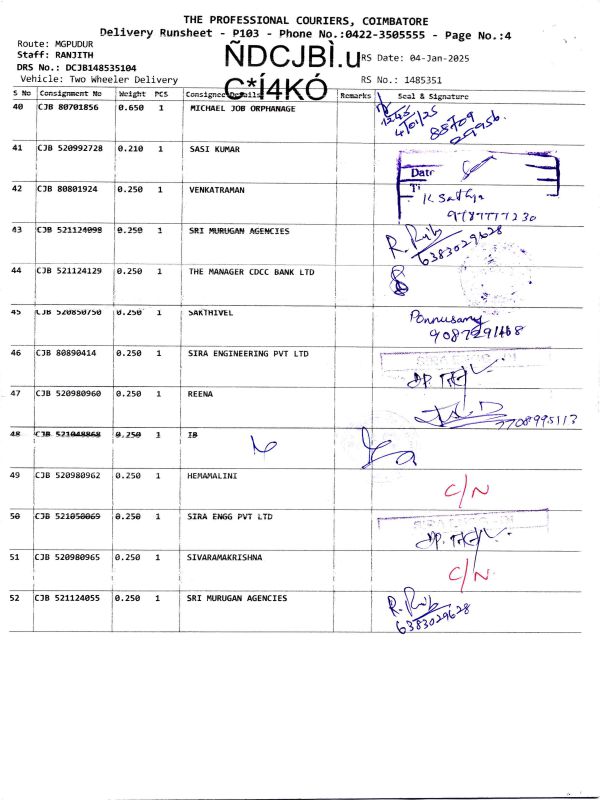 THE PROFESSIONAL COURIERS, COIMBATORE
Delivery Runsheet - P103 - Phone No.:0422-3505555 - Page No.:4
Route: MGPUDUR
Staff: RANJITH ÑDCJBÌ.u RS Date: 04-Jan-2025
DRS No.: DCJB148535104
Vehicle: Two Wheeler Delivery C*Í4KÓ RS No.: 1485351
S No Consignment No Weight PCS Consignee Details Remarks Seal & Signature
40 CJB 80701856 0.650 1 MICHAEL JOB ORPHANAGE
4/01/25
41 CJB 520992728 0.210 1 SASI KUMAR
Date
42 CJB 80801924 0.250 1 VENKATRAMAN
K Sathya
9787777230
43 CJB 521124098 0.250 1 SRI MURUGAN AGENCIES
6383029628
44 CJB 521124129 0.250 1 THE MANAGER CDCC BANK LTD
45 CJB 520850750 0.250 1 SAKTHIVEL Ponnusamy
9087291468
46 CJB 80890414 0.250 1 SIRA ENGINEERING PVT LTD
47 CJB 520980960 0.250 1 REENA
7708995113
48 CJB 521048868 0.250 1 IB
49 CJB 520980962 0.250 1 HEMAMALINI C/N
50 CJB 521050069 0.250 1 SIRA ENGG PVT LTD
51 CJB 520980965 0.250 1 SIVARAMAKRISHNA C/N
52 CJB 521124055 0.250 1 SRI MURUGAN AGENCIES
6383029628